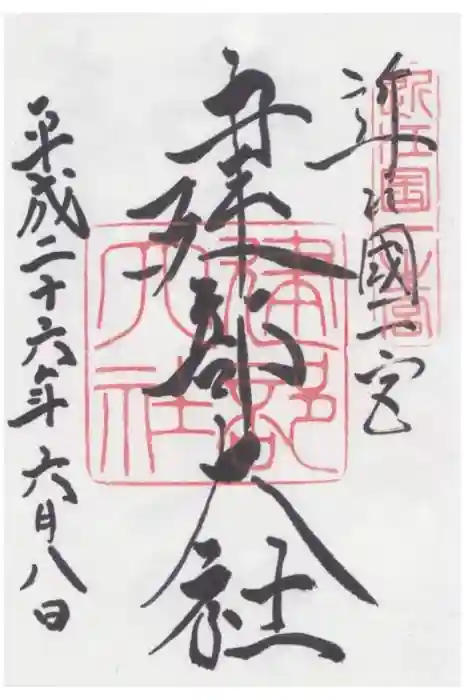 近江國一宮
近江国一之宮
建部大社
建部大社
平成二十六年六月八日